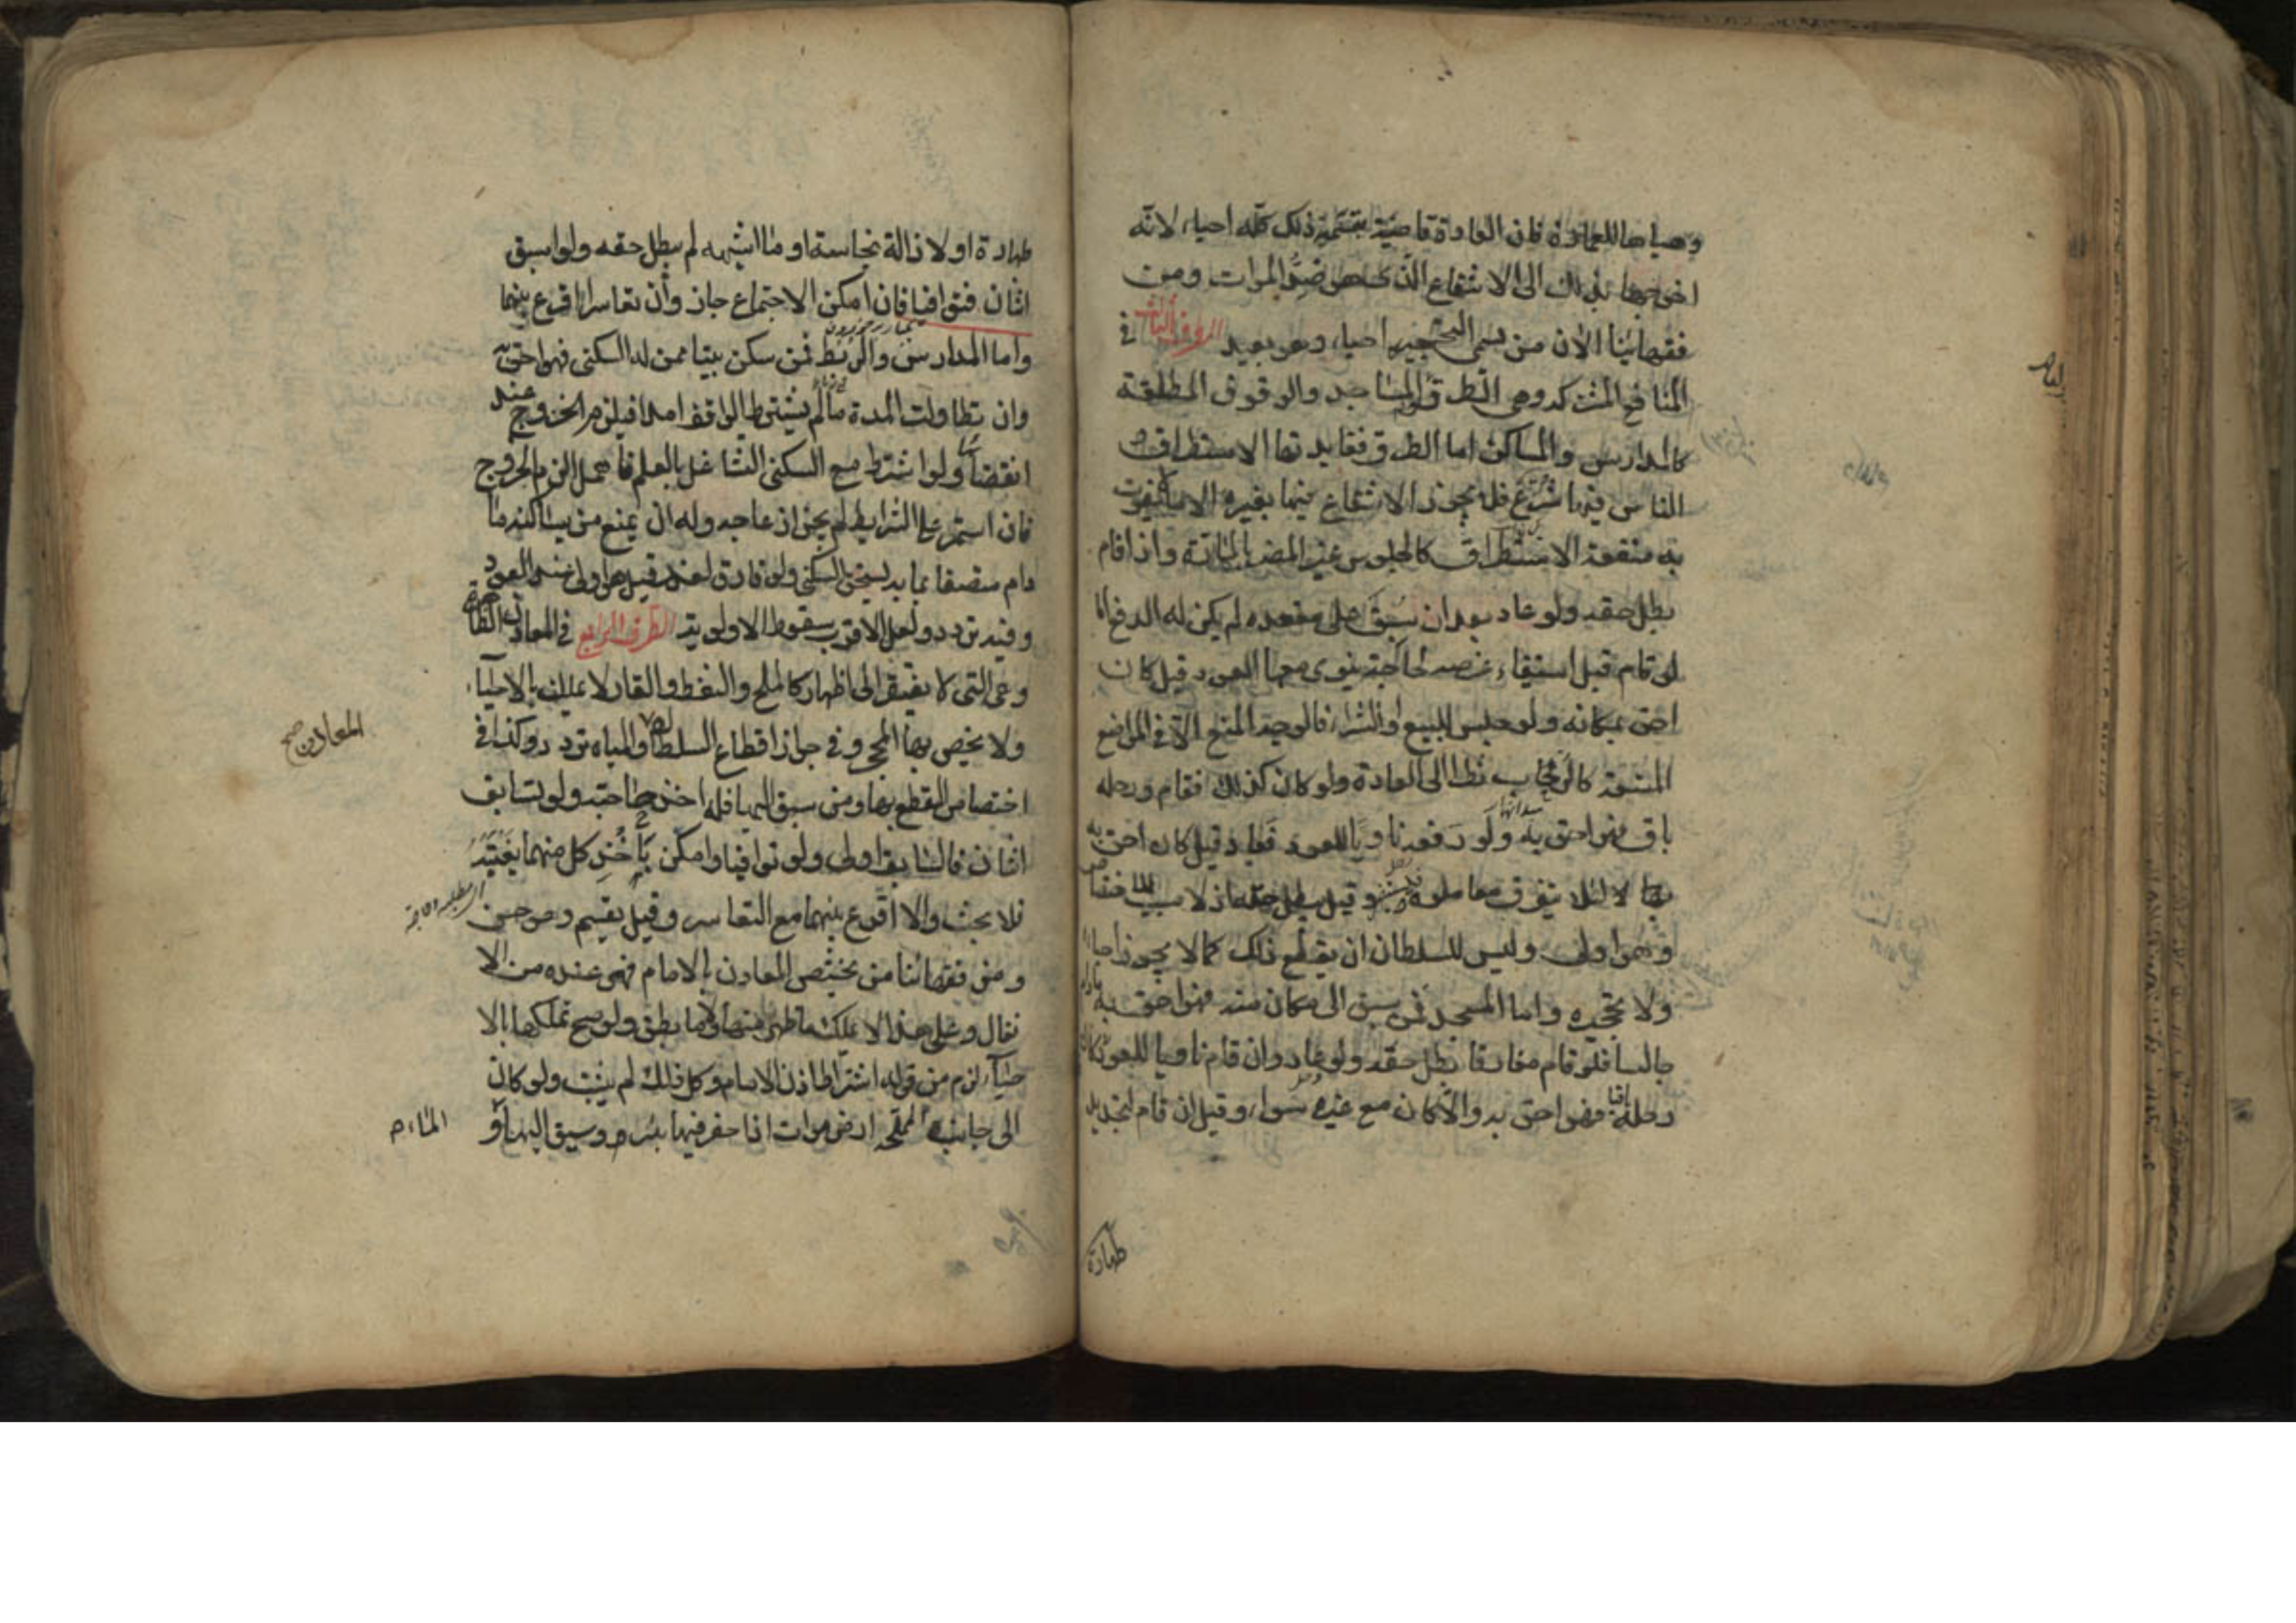 وهيأها للعمارة فان العادة قاضية بتسمية ذلك كله احياء لانه
اخرجها بذلك الى الانتفاع الذى هو ضد الموات ومن
فقهائنا الان من يسمى التحجير احياء وهو بعيد الطرف الثالث في
المنافع المشتركة وهى الطرق والمساجد والوقوف المطلقة
كالمدارس والمساكن اما الطرق ففايدتها الاستطراق و
الناس فيها شرع فلا يجوز الانتفاع فيها بغيره الا ما لا يفوت
به منفعة الاستطراق كالجلوس غير المضر بالمارة واذا قام
بطل حقه ولو عاد بعد ان سبق على مقعده لم يكن له الدفع اما
لو قام قبل استيفاء غرضه لحاجة ينوى معها العود قيل كان
احق بمكانه ولو جلس للبيع او الشراء فالوجه المنع الا في المواضع
المتسعة كالرحاب نظرا الى العادة ولو كان كذلك فقام ورحله
باق فهو احق به ولو رفعه ناويا للعود فعاد قيل كان احق به
لئلا يتفرق معاملوه وقيل بطل حقه اذ لا سبب للاختصاص
وهو اولى وليس للسلطان ان يقطع ذلك كما لا يجوز احياؤه
ولا تحجيره واما المسجد فمن سبق الى مكان منه فهو احق به ما دام
جالسا فلو قام مفارقا بطل حقه ولو عاد وان قام ناويا للعود فان كان
رحله باقيا فهو احق به والا كان مع غيره سواء وقيل ان قام لتجديد
طهارة
طهارة او لازالة نجاسة او ما اشبهه لم يبطل حقه ولو استبق
اثنان فتوافيا فان امكن الاجتماع جاز وان تعاسرا اقرع بينهما
واما المدارس والربط فمن سكن بيتا ممن له السكنى فهو احق به
وان تطاولت المدة ما لم يشترط الواقف امدا فيلزم الخروج عند
انقضائه ولو اشترط مع السكنى التشاغل بالعلم فاهمل الزم الخروج
فان استمر على الشرايط لم يجز ازعاجه وله ان يمنع من يساكنه ما
دام متصفا بما به يستحق السكنى ولو فارق لعذر قيل هو اولى عند العود
وفيه تردد ولعل الاقرب سقوط الاولوية الطرف الرابع في المعادن الظاهرة
وهى التى لا يفتقر الى اظهار كالملح والنفط والقار لا تملك بالاحياء
ولا يختص بها المحجر وفي جواز اقطاع السلطان والمياه تردد وكذا في
المعادن صح
اختصاص المقطع بها ومن سبق اليها فله اخذ حاجته ولو تسابق
اثنان فالسابق اولى ولو توافيا وامكن ياخذ كل منهما بغيته
فلا بحث والا اقرع بينهما مع التعاسر وقيل يقسم وهو حسن
ومن فقهائنا من يختص المعادن بالامام فهى عنده من الا
نفال وعلى هذا لا يملك ما ظهر منها وما بطن ولو صح تملكها بالا
حياء لزم من قوله اشتراط اذن الامام وكل ذلك لم يثبت ولو كان
الى جانب المملحة ارض موات اذا حفر فيها بئر وسيق اليها
الماء م